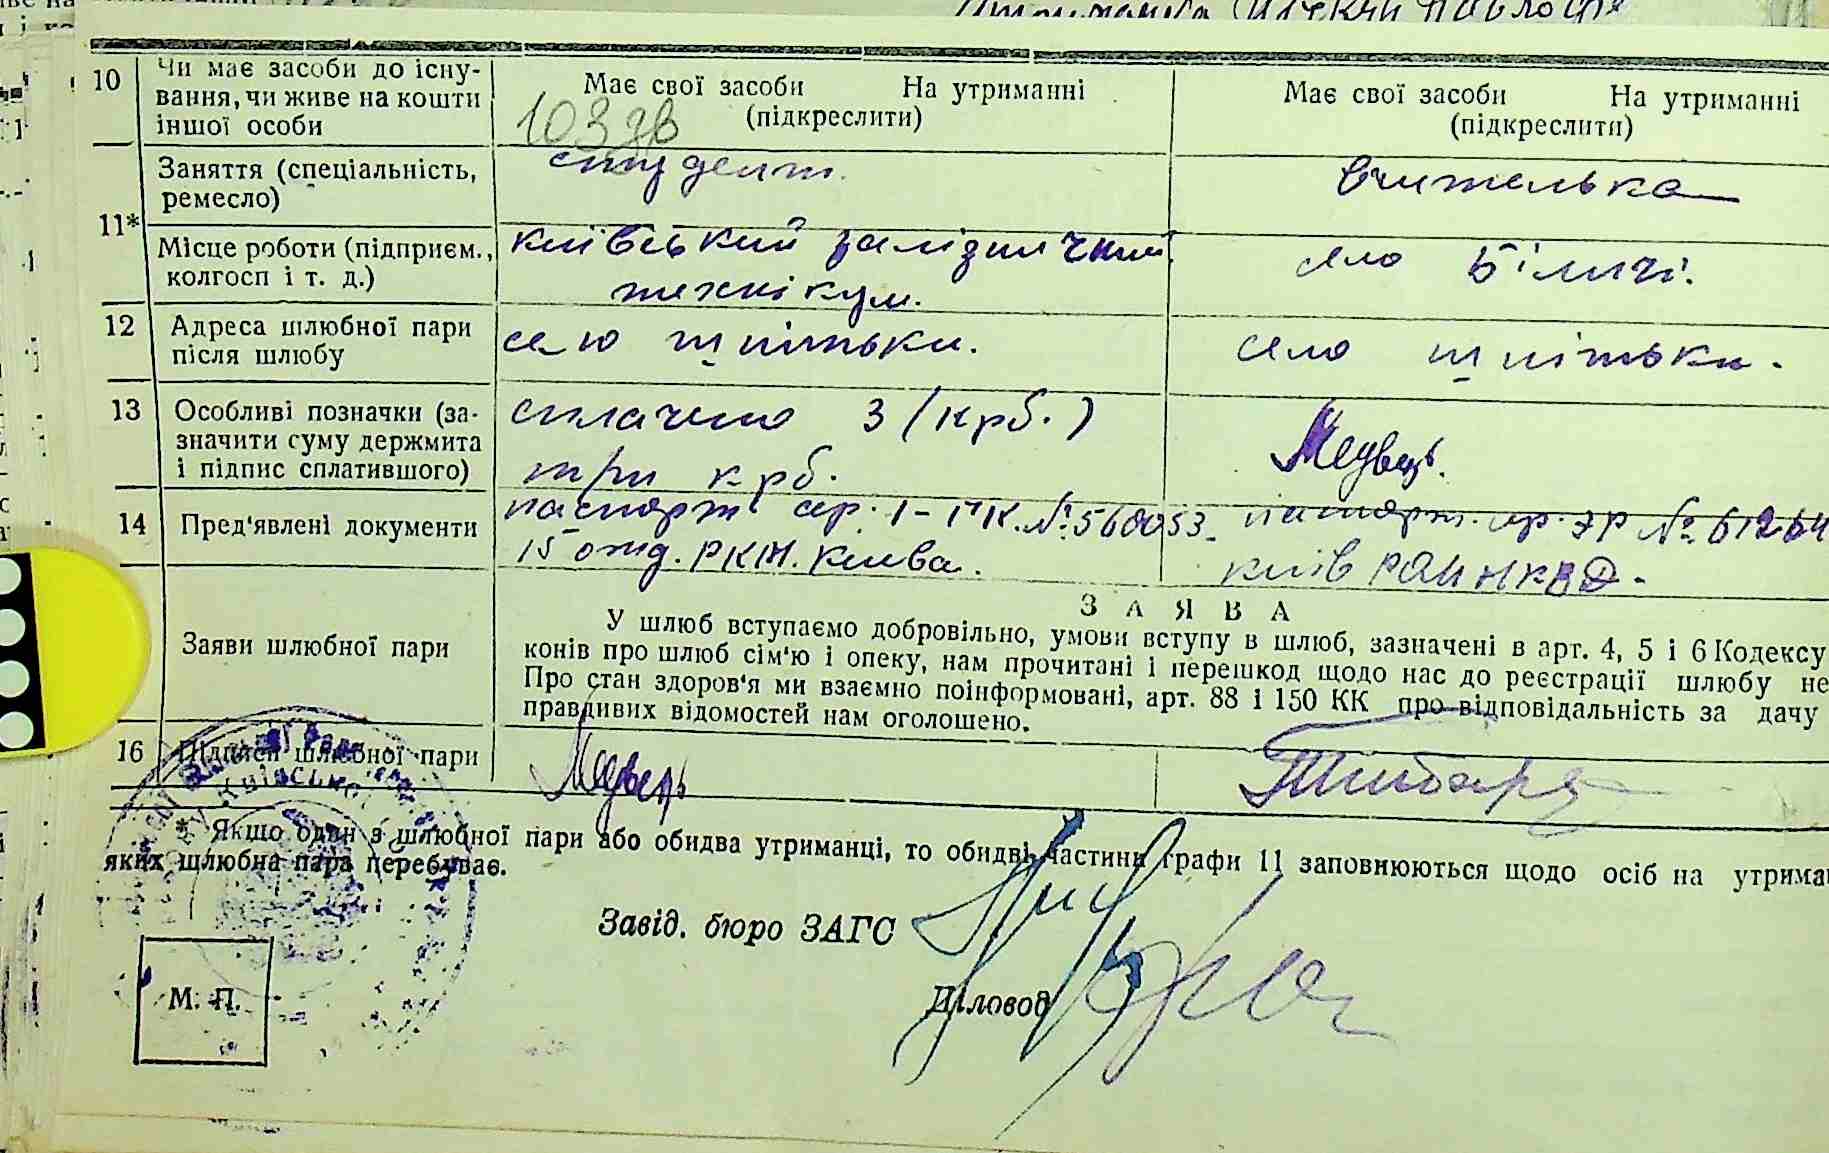 10 Чи має засоби до існу-
вання, чи живе на кошти
іншої особи
Має свої засоби На утриманні
(підкреслити)
Має свої засоби На утриманні
(підкреслити)
103 зв
11* Заняття (спеціальність,
ремесло)
студент.
вчителька
Місце роботи (підприєм.,
колгосп і т. д.)
київський залізничний
технікум.
село Біличі.
12 Адреса шлюбної пари
після шлюбу
село шпітьки.
село шпітьки.
13 Особливі позначки (за-
значити суму держмита
і підпис сплатившого)
сплачено 3 (крб.)
три крб.
Медведь.
14 Пред'явлені документи
паспорт сер. I-ПК. № 560053.
15 отд. РКМ. Києва.
паспорт. сер. ЭР №
київ РОМ НКВД.
Заяви шлюбної пари
ЗАЯВА
У шлюб вступаємо добровільно, умови вступу в шлюб, зазначені в арт. 4, 5 і 6 Кодексу
конів про шлюб сім'ю і опеку, нам прочитані і перешкод щодо нас до реєстрації шлюбу не
Про стан здоров'я ми взаємно поінформовані, арт. 88 і 150 КК про відповідальність за дачу
правдивих відомостей нам оголошено.
16 Підписи шлюбної пари
Медведь
* Якщо один з шлюбної пари або обидва утриманці, то обидві частини графи 11 заповнюються щодо осіб на утриман
яких шлюбна пара перебуває.
Завід. бюро ЗАГС
Діловод
М. П.